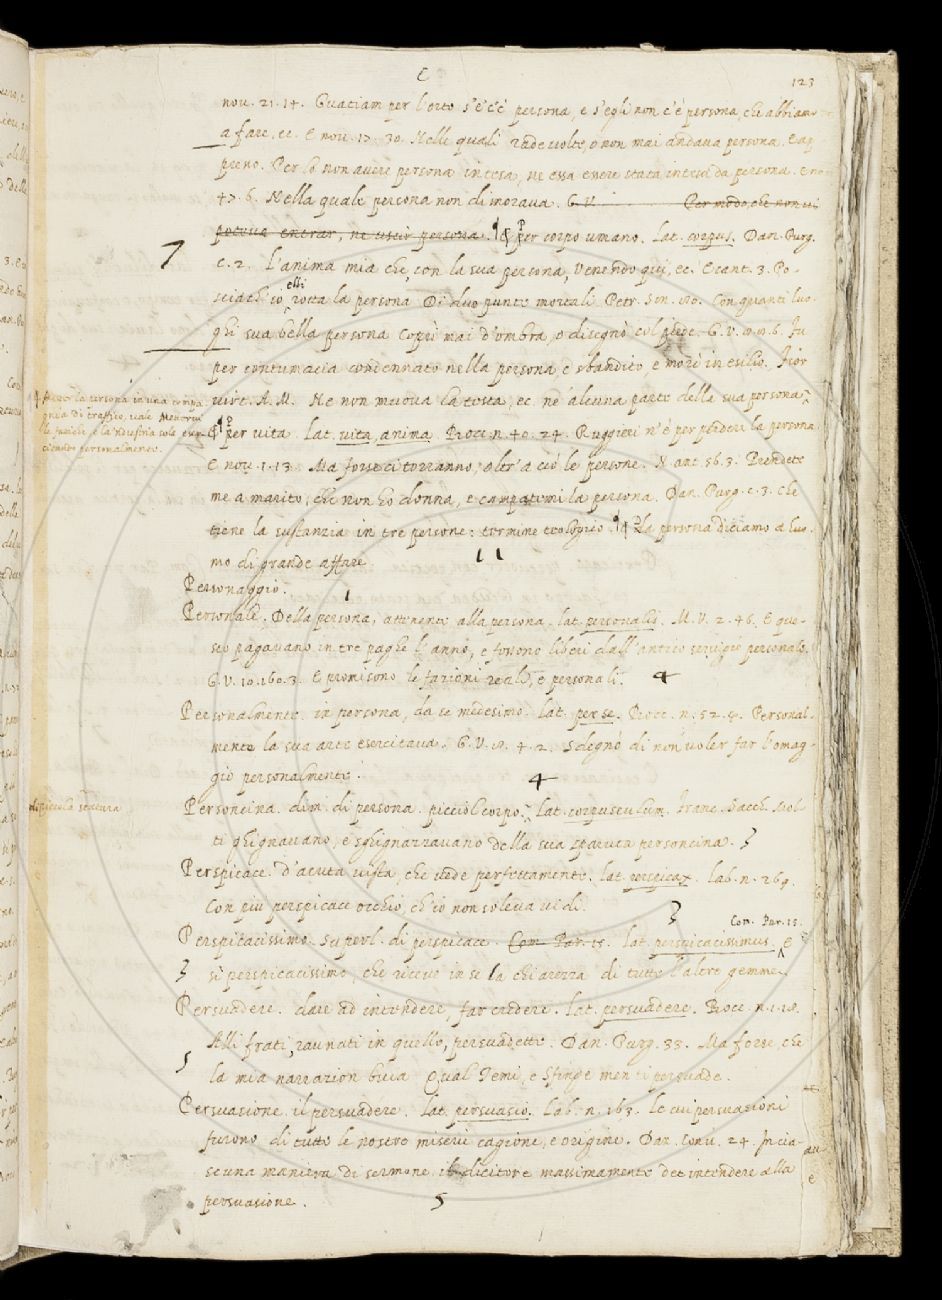 123
nov. 21. 14. Guatiam per l'orto s'e' c'è persona, e s'egli non c'è persona, che abbiam
a fare, ec. E nov. 17. 30. Nelle quali rade volte, o non mai andava persona. E ap
preno. Per lo non avere persona intesa, ne essa essere stata intesa da persona. E no
47. 6. Nella quale persona non dimorava. G. V. Per modo, che non vi
poteva entrar, ne uscir persona. ¶ per corpo umano. Lat. corpus. Dan. Purg.
C. 2. L'anima mia che, con la sua persona, venendo qui, ec. E cant. 3. Po-
sciach' io
elli
rotta la persona Di duo punte mortali. Petr. Son. Con quanti luo-
ghi sua bella persona copri mai d'ombra, o disegnò col piede. G. V. Fu
per contumacia condennato nella persona e sbandito, e morì in esilio. Fior
virt. A. M. Ne non muova la testa, ec. né alcuna parte della sua persona.
¶ per vita. Lat. vita, anima. Bocc. n. 40. 24. Ruggieri n'è per perdere la persona
E nov. 1. 13. Ma forse ci torranno, oltr'a ciò le persone. N. ant. 56. 3. Prendete
me a marito, che non ho donna, e campatemi la persona. Dan. Purg. c. 3. Che
tiene la sustanzia in tre persone: termine teologico. ¶ Da persona diciamo a huo-
mo di grande affare.
11
Personaggio.
1
Personale. Della persona, attenente alla persona. lat. personalis. M. V. 2. 46. E que-
sto pagavano in tre paghe l'anno, e fossono liberi dall'antico servigio personale.
G. V. 10. 160. 3. E promisono le fazioni reali, e personali. 4
Personalmente. in persona, da se medesimo. Lat. per se. Bocc. n. 52. Personal-
mente la sua arte esercitava. G. V. 4. 2. Sdegnò di non voler far l'omag-
gio personalmente.
4
di piccola statura
Personcina. dim. di persona. picciol corpo. Lat. corpusculum. Franc. Sacch. Mol-
ti ghignavano, e sghignazzavano della sua sparuta personcina. 3
Perspicace. d'acuta vista, che vede perfettamente. lat. perspicax. Lab. n. 269.
Con più perspicace occhio, ch'io non soleva vidi.
3
Con. Par. 15.
Perspicacissimo. Superl. di perspicace. Com. Par. 15. lat. perspicacissimus. E
3 sì perspicacissimo, che riceve in se la chiarezza di tutte l'altre gemme.
Persuadere. dare ad intendere, far credere. Lat. persuadere. Bocc. n. 1.
Alli frati, raunati in quello, persuadette. Dan. Purg. 33. Ma forse, che
5 la mia narrazion buia Qual Temi, e Sfinge men ti persuade.
Persuasione. il persuadere. lat. persuasio. Lab. n. 163. le cui persuasioni
furono di tutte le nostre miserie cagione, e origine. Dan. Conv. 24. In cia-
scuna maniera di sermone il dicitore massimamente dee intendere alla
persuasione.
5